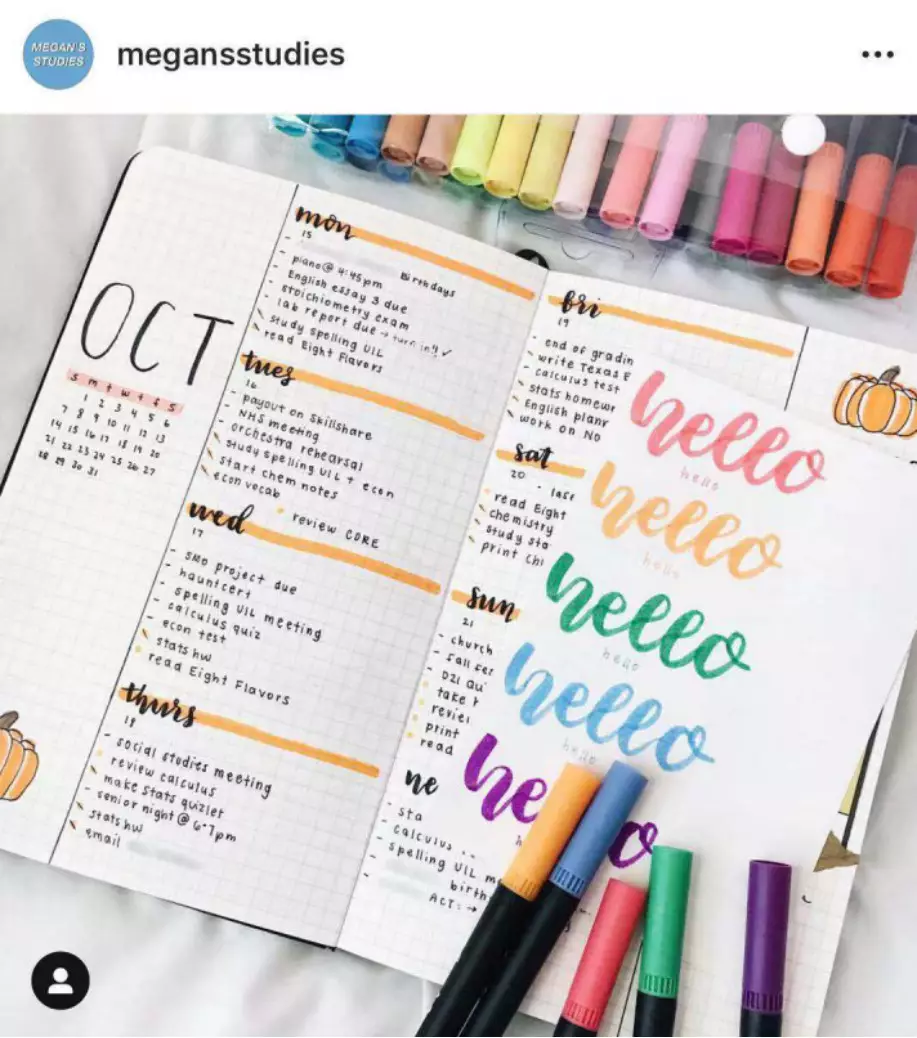 MEGAN'S
STUDIES
megansstudies
OCT
s m t w t f s
1 2 3 4 5 6
7 8 9 10 11 12 13
14 15 16 17 18 19 20
21 22 23 24 25 26 27
28 29 30 31
mon
15
birthdays
- piano @ 4:45pm
- English essay 3 due
- stoichiometry exam
- lab report due → turn in!! ✓
study spelling UIL
read Eight Flavors
tues
16
- payout on Skillshare
- NHS meeting
- orchestra rehearsal
study spelling UIL + econ
start chem notes
econ vocab
review CORE
wed
17
- SMO project due
- hauntcert
- spelling UIL meeting
- calculus quiz
- econ test
stats hw
read Eight Flavors
thurs
18
- social studies meeting
review calculus
make Stats quizlet
- senior night @ 6-7pm
stats hw
email
fri
19
- end of gradin
write Texas E
- calculus test
stats homewr
English plann
work on No
sat
20
read Eight
chemistry
study sta
print Chi
sun
21
- church
- fall fes
- D21 Qu
take
review
print
read
ne
- sta
- calculus
- spelling UIL m
birth
ACT: →
hello
hello
hello
hello
hello
hello
hello
hello
hello